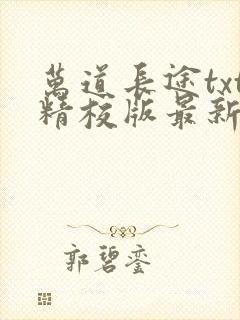 萬道長途txt
精校版最新
郭碧銮